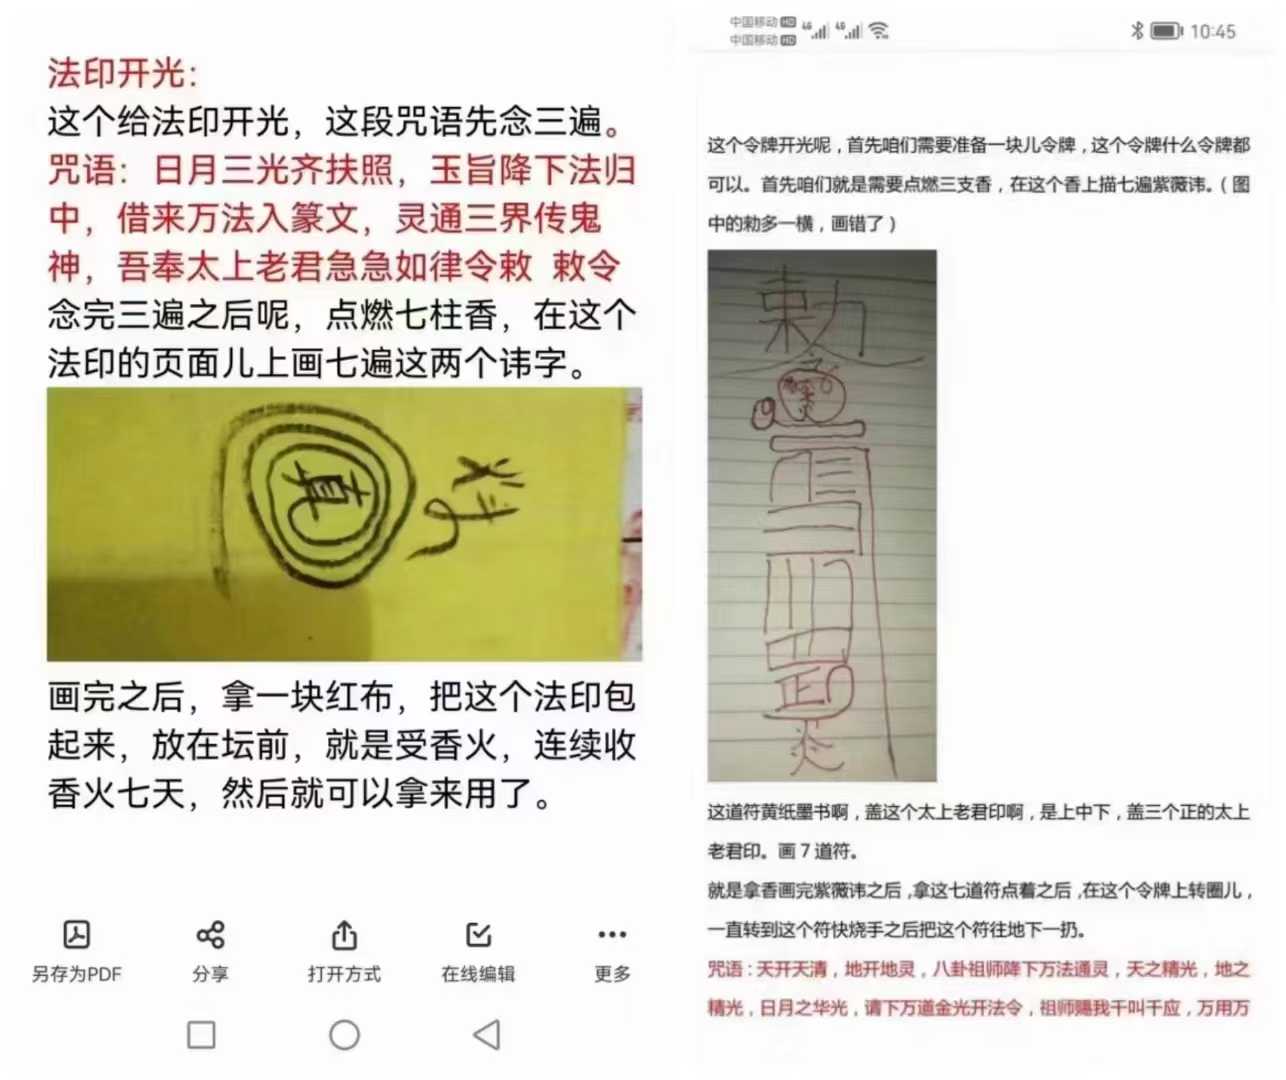 法印开光：
这个给法印开光，这段咒语先念三遍。
咒语：日月三光齐扶照，玉旨降下法归
中，借来万法入篆文，灵通三界传鬼
神，吾奉太上老君急急如律令敕 敕令
念完三遍之后呢，点燃七柱香，在这个
法印的页面儿上画七遍这两个讳字。
真
画完之后，拿一块红布，把这个法印包
起来，放在坛前，就是受香火，连续收
香火七天，然后就可以拿来用了。
另存为PDF
分享
打开方式
在线编辑
更多
中国移动HD 4G 4G
中国移动HD
10:45
这个令牌开光呢，首先咱们需要准备一块儿令牌，这个令牌什么令牌都
可以。首先咱们就是需要点燃三支香，在这个香上描七遍紫薇讳。（图
中的勅多一横，画错了）
这道符黄纸墨书啊，盖这个太上老君印啊，是上中下，盖三个正的太上
老君印。画7道符。
就是拿香画完紫薇讳之后，拿这七道符点着之后，在这个令牌上转圈儿，
一直转到这个符快烧手之后把这个符往地下一扔。
咒语：天开天清，地开地灵，八卦祖师降下万法通灵，天之精光，地之
精光，日月之华光，请下万道金光开法令，祖师赐我千叫千应，万用万